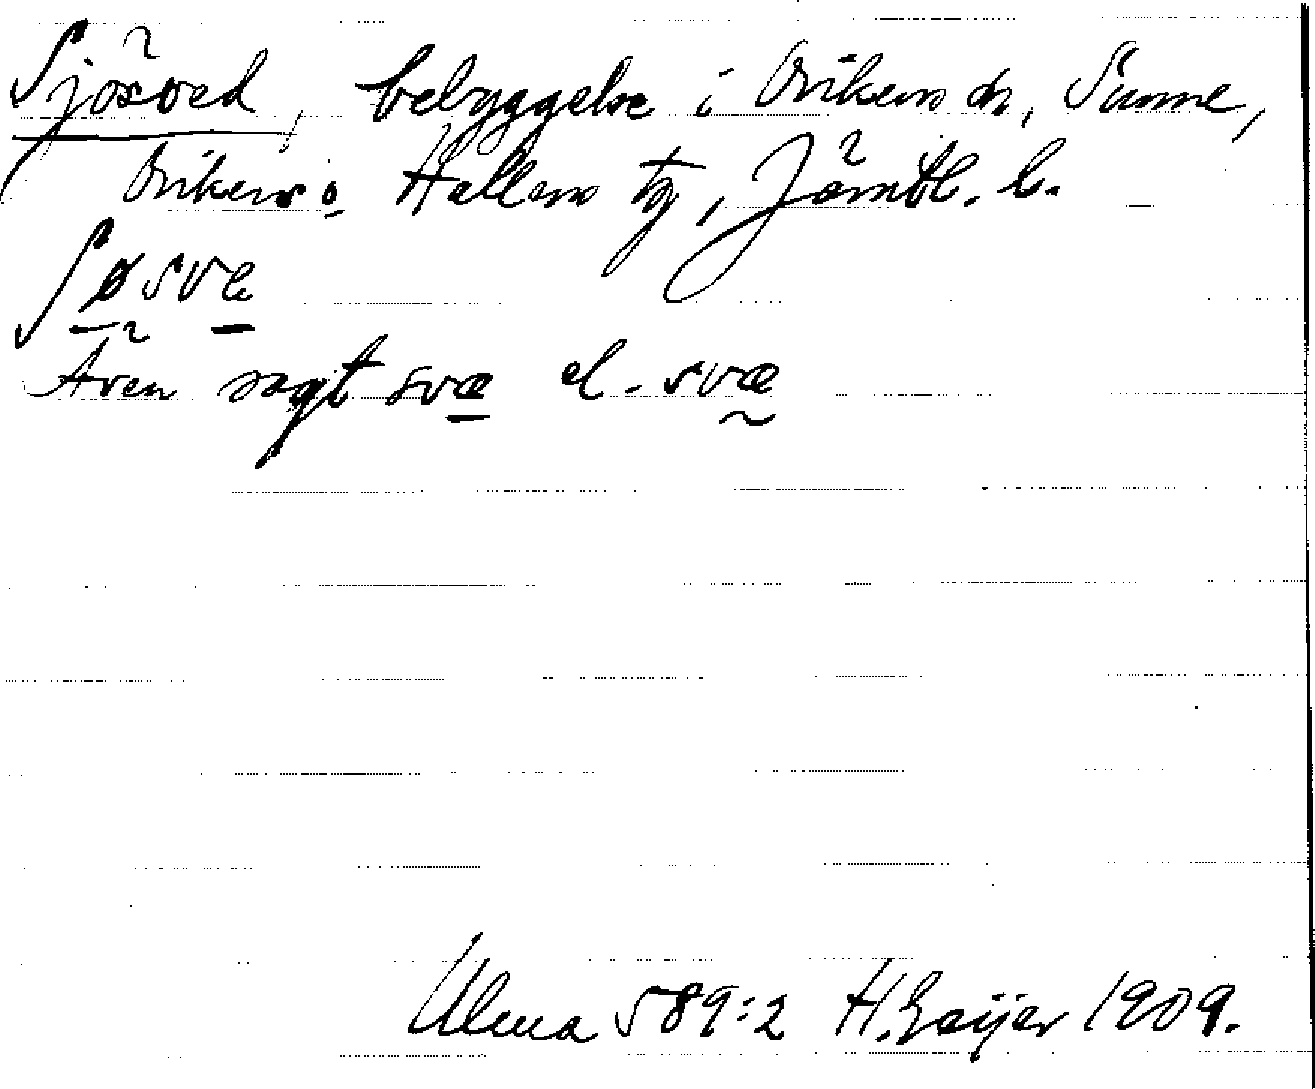 Sjösved, bebyggelse i Ovikens sn, Sunne,
Ovikens o. Hallens tg, Jämtl. l.
ʃøsve
Även sagt svæ el. svæ
Ulma 589:2 H. Geijer 1909.